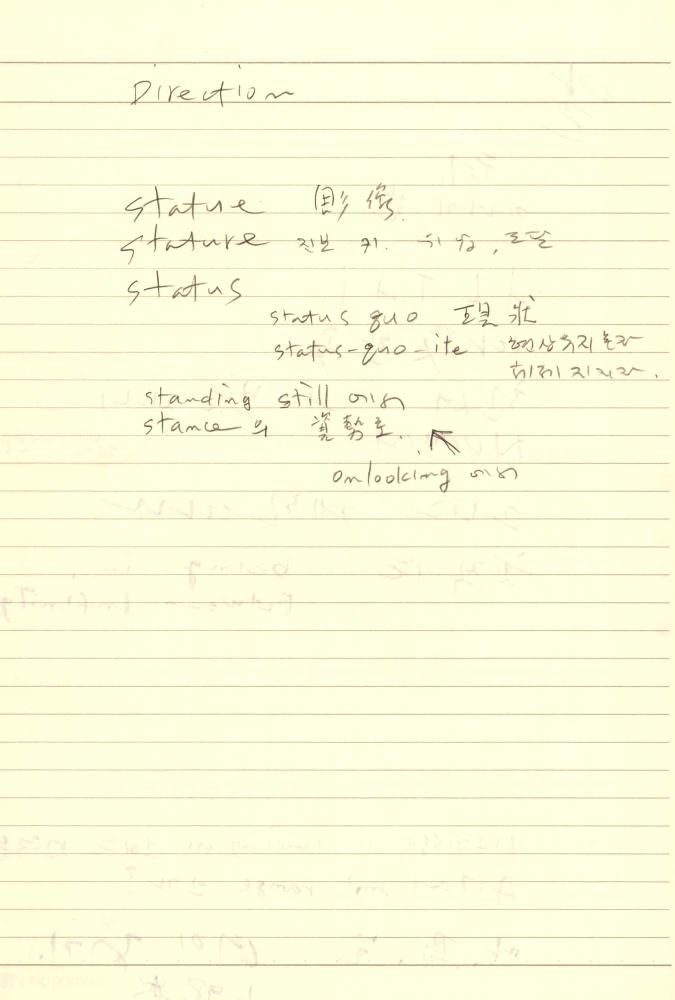 Direction
statue 彫像
stature 진보 키. 위상, 도달
status
status quo 現狀
status-quo-ite 현상유지론자
체제 지지자.
standing still 에서
stance의 資勢로.
onlooking 에서